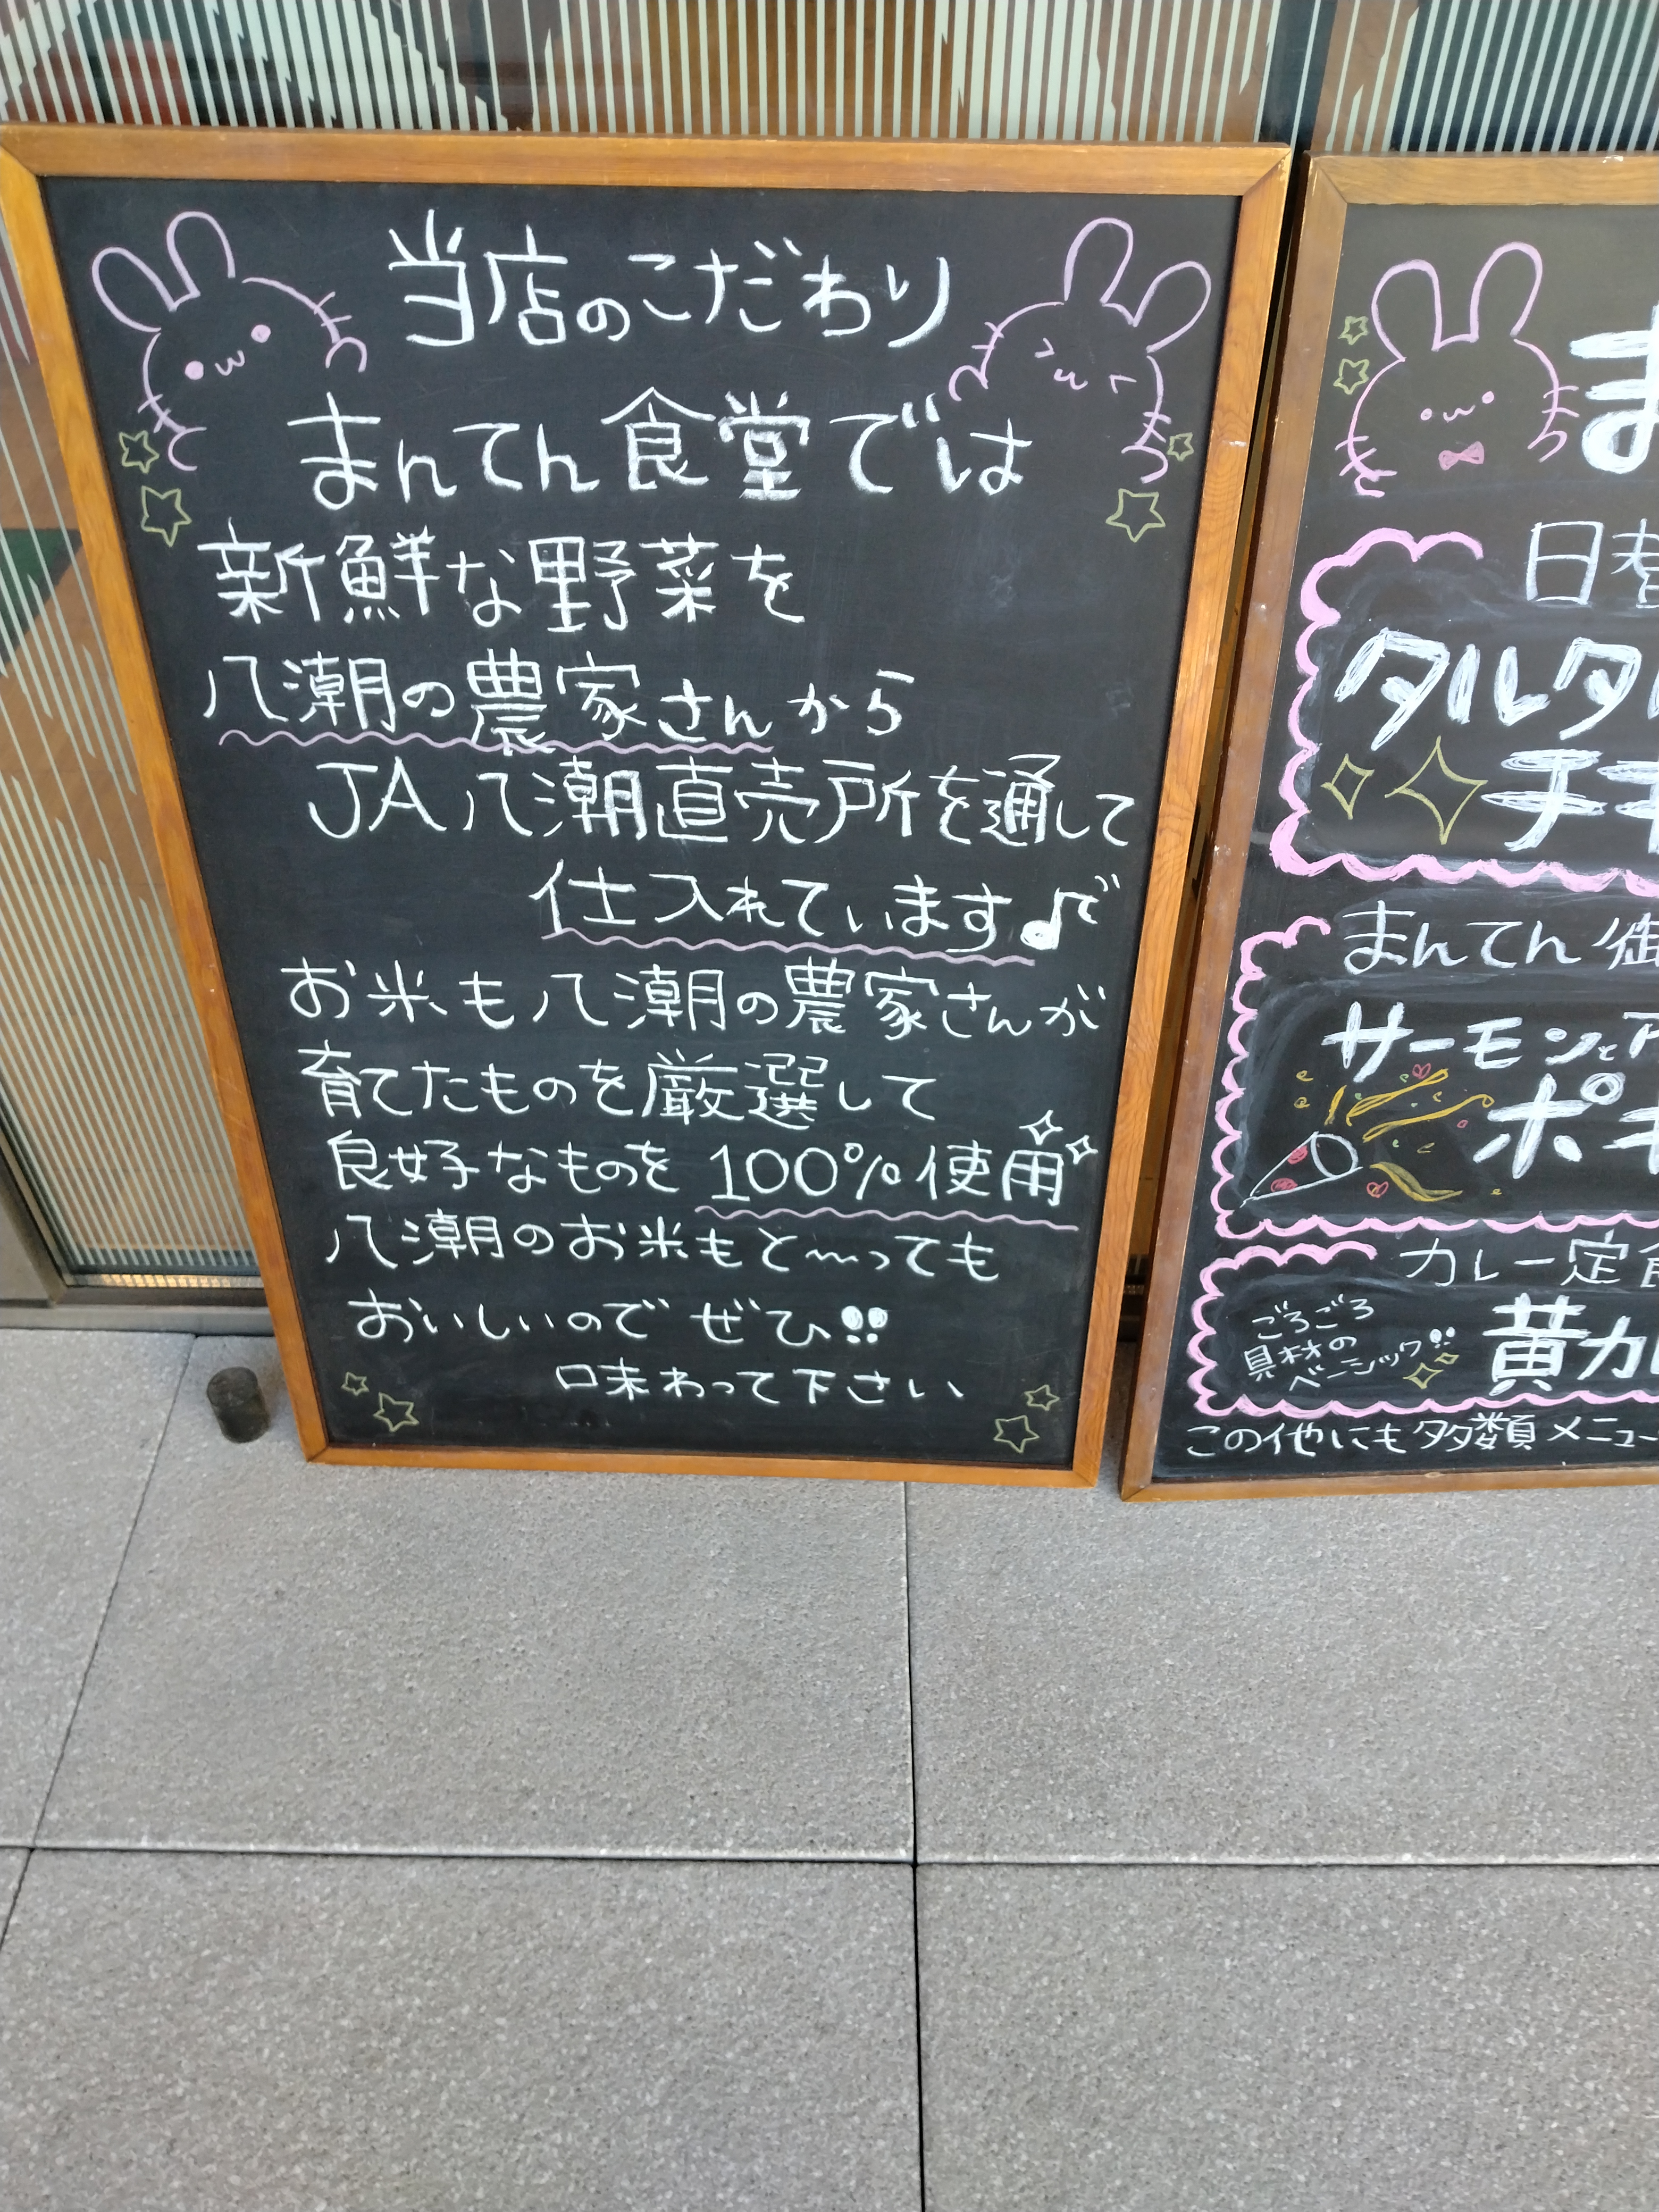 当店のこだわり
まんてん食堂では
新鮮な野菜を
八潮の農家さんから
JA八潮直売所を通して
仕入れています♪
お米も八潮の農家さんが
育てたものを厳選して
良好なものを100%使用
八潮のお米もと〜っても
おいしいのでぜひ!!
口味わって下さい
ま
日替
タルタル
チキ
まんてん御
サーモンとア
ポキ
カレー定食
ごろごろ
具材の
ベーシック!!
黄カレ
この他にも多数類メニュー